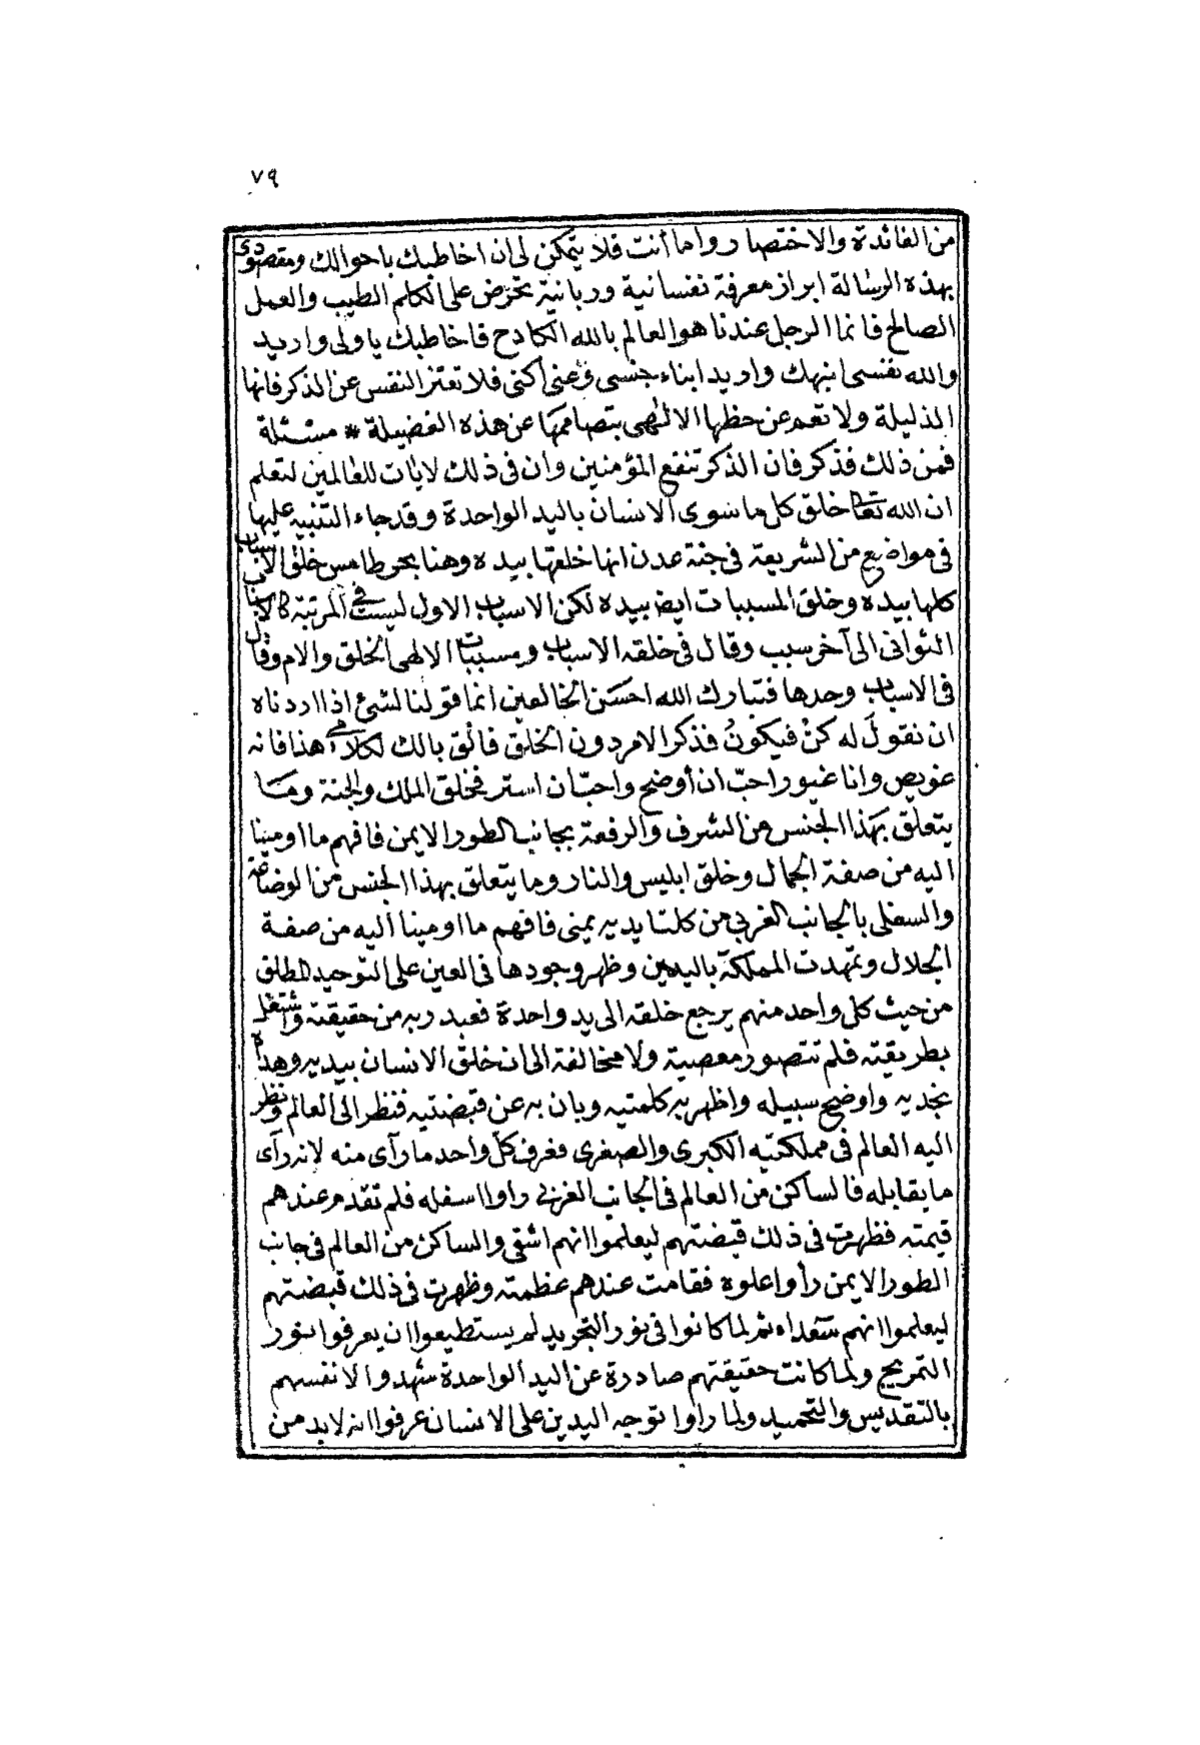 ٧٩
من الفائدة والاختصار واما أنت فلا يتمكن لى ان اخاطبك باحوالك ومقصودى
بهذه الرسالة ابراز معرفة نفسانية وربانية تحرض على الكلم الطيب والعمل
الصالح فانما الرجل عندنا هو العالم بالله الكادح فاخاطبك ياولى واريد
والله نفسى انبهك واريد ابناء جنسى وعنى أكنى فلا تعتز النفس عن الذكر فانها
الذليلة ولا تعم عن حظها الالهى بتصاممها عن هذه الفضيلة * مسئلة
فمن ذلك فذكر فان الذكر تنفع المؤمنين وان فى ذلك لايات للعالمين لتعلم
ان الله تعالى خلق كل ما سوى الانسان باليد الواحدة وقد جاء التنبيه عليها
فى مواضع من الشريعة فى جنة عدن انها خلقها بيده وهنا بحر طامس خلق الاسباب
كلها بيده وخلق المسببات ايض بيده لكن الاسباب الاول ليست فى المرتبة كالاسباب
الثوانى الى آخر سبب وقال فى خلقه الاسباب ومسببات الالهى الخلق والامر وقال
فى الاسباب وحدها فتبارك الله احسن الخالقين انما قولنا لشئ اذا اردناه
ان نقول له كن فيكون فذكر الامر دون الخلق فالق بالك لكلامى هذا فانه
عويص وانا غيور احب ان أوضح واحب ان استر فخلق الملك والجنة وما
يتعلق بهذا الجنس من الشرف والرفعة بجانب الطور الايمن فافهم ما اومينا
اليه من صفة الجمال وخلق ابليس والنار وما يتعلق بهذا الجنس من الوضاعة
والسفلى بالجانب الغربى من كلتا يديه يمنى فافهم ما اومينا اليه من صفة
الجلال وتمهدت المملكة باليدين وظهر وجودها فى العين على التوحيد المطلق
من حيث كل واحد منهم يرجع خلقه الى يد واحدة فعبد ربه من حقيقته واشتغل
بطريقته فلم تتصور معصية ولا مخالفة الى ان خلق الانسان بيديه وهداه
نجديه واوضح سبيله واظهر به كلمتيه وبان به عن قبضتيه فنظر الى العالم ونظر
اليه العالم فى مملكتيه الكبرى والصغرى فعرف كل واحد ما رآى منه لانه رآى
ما يقابله فالساكن من العالم فى الجانب الغربى راوا اسفله فلم تقدم عندهم
قيمته فظهرت فى ذلك قبضتهم ليعلموا انهم اشقى والساكن من العالم فى جانب
الطور الايمن رأوا علوه فقامت عندهم عظمته وظهرت فى ذلك قبضتهم
ليعلموا انهم سعداء ثم لما كانوا فى نور التجريد لم يستطيعوا ان يعرفوا نور
التمريج ولما كانت حقيقتهم صادرة عن اليد الواحدة شهدوا لانفسهم
بالتقديس والتحميد ولما راوا توجه اليدين على الانسان عرفوا انه لابد من